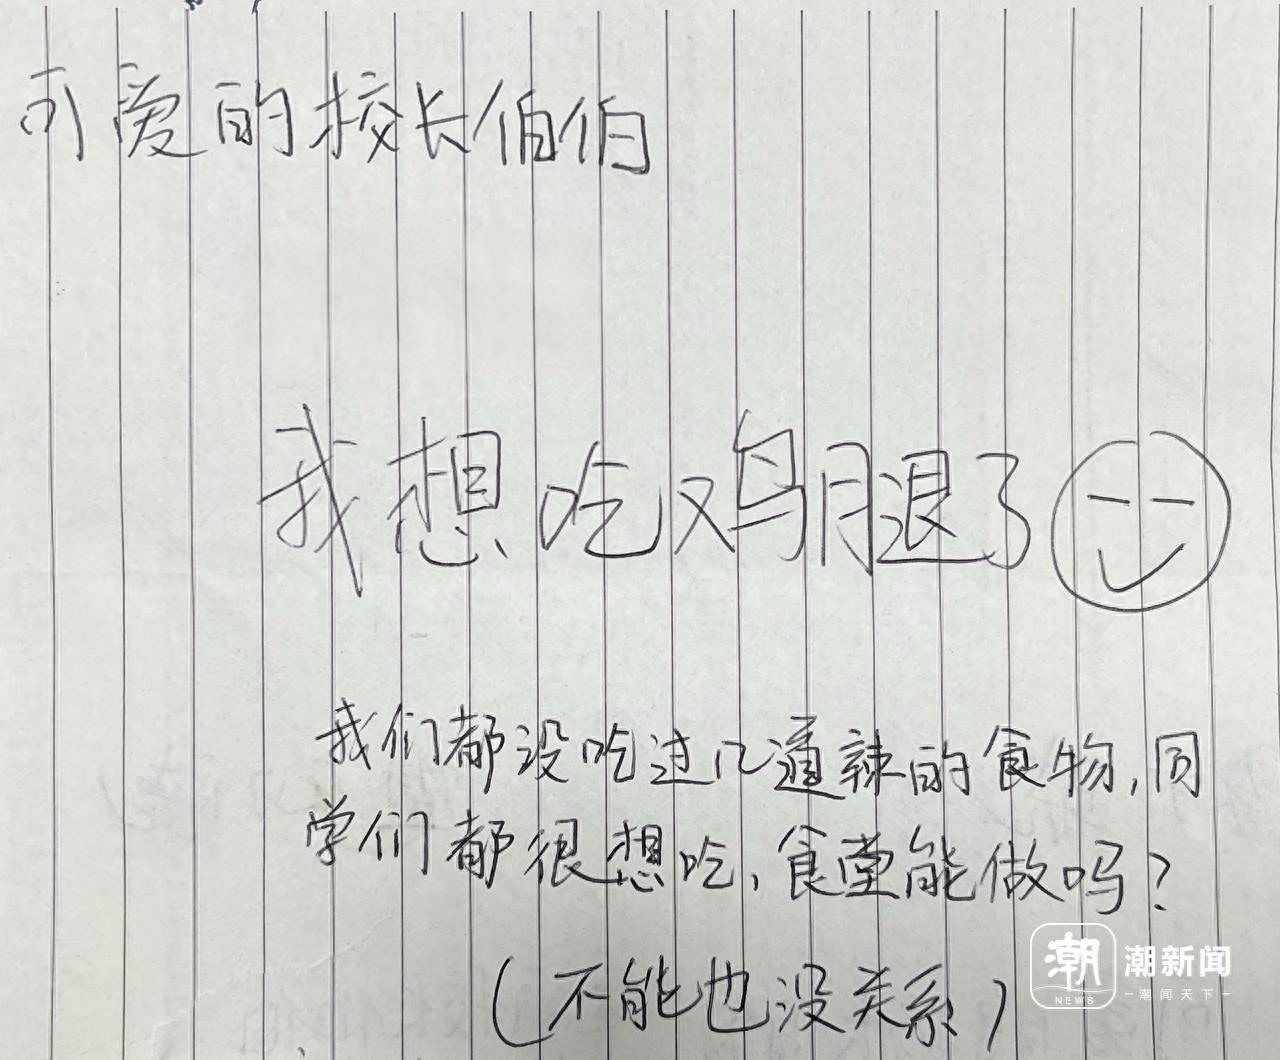 可爱的校长伯伯
我想吃鸡腿了
我们都没吃过几道辣的食物,同
学们都很想吃,食堂能做吗?
(不能也没关系)
潮 潮新闻
NEWS 潮闻天下